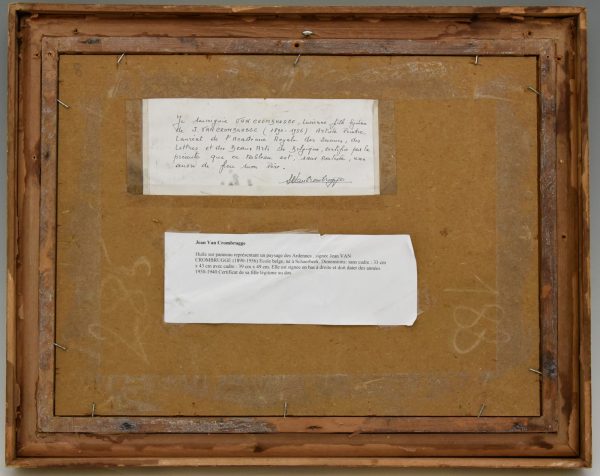 Je soussignée VAN CROMBRUGGE, Lucienne fille légitime
de J. VAN CROMBRUGGE (1890-1956) Artiste Peintre,
Lauréat de l'Académie Royale des Sciences, des
Lettres et des Beaux Arts de Belgique, certifie par la
présente que ce tableau est, sans conteste, une
œuvre de feu mon Père.
Jean Van Crombrugge
Huile sur panneau représentant un paysage des Ardennes signée Jean VAN
CROMBRUGGE (1890-1956) Ecole belge, né à Schaerbeek. Dimensions: sans cadre : 33 cm
x 43 cm avec cadre : 39 cm x 49 cm. Elle est signée en bas à droite et doit dater des années
1930-1940.Certificat de sa fille légitime au dos